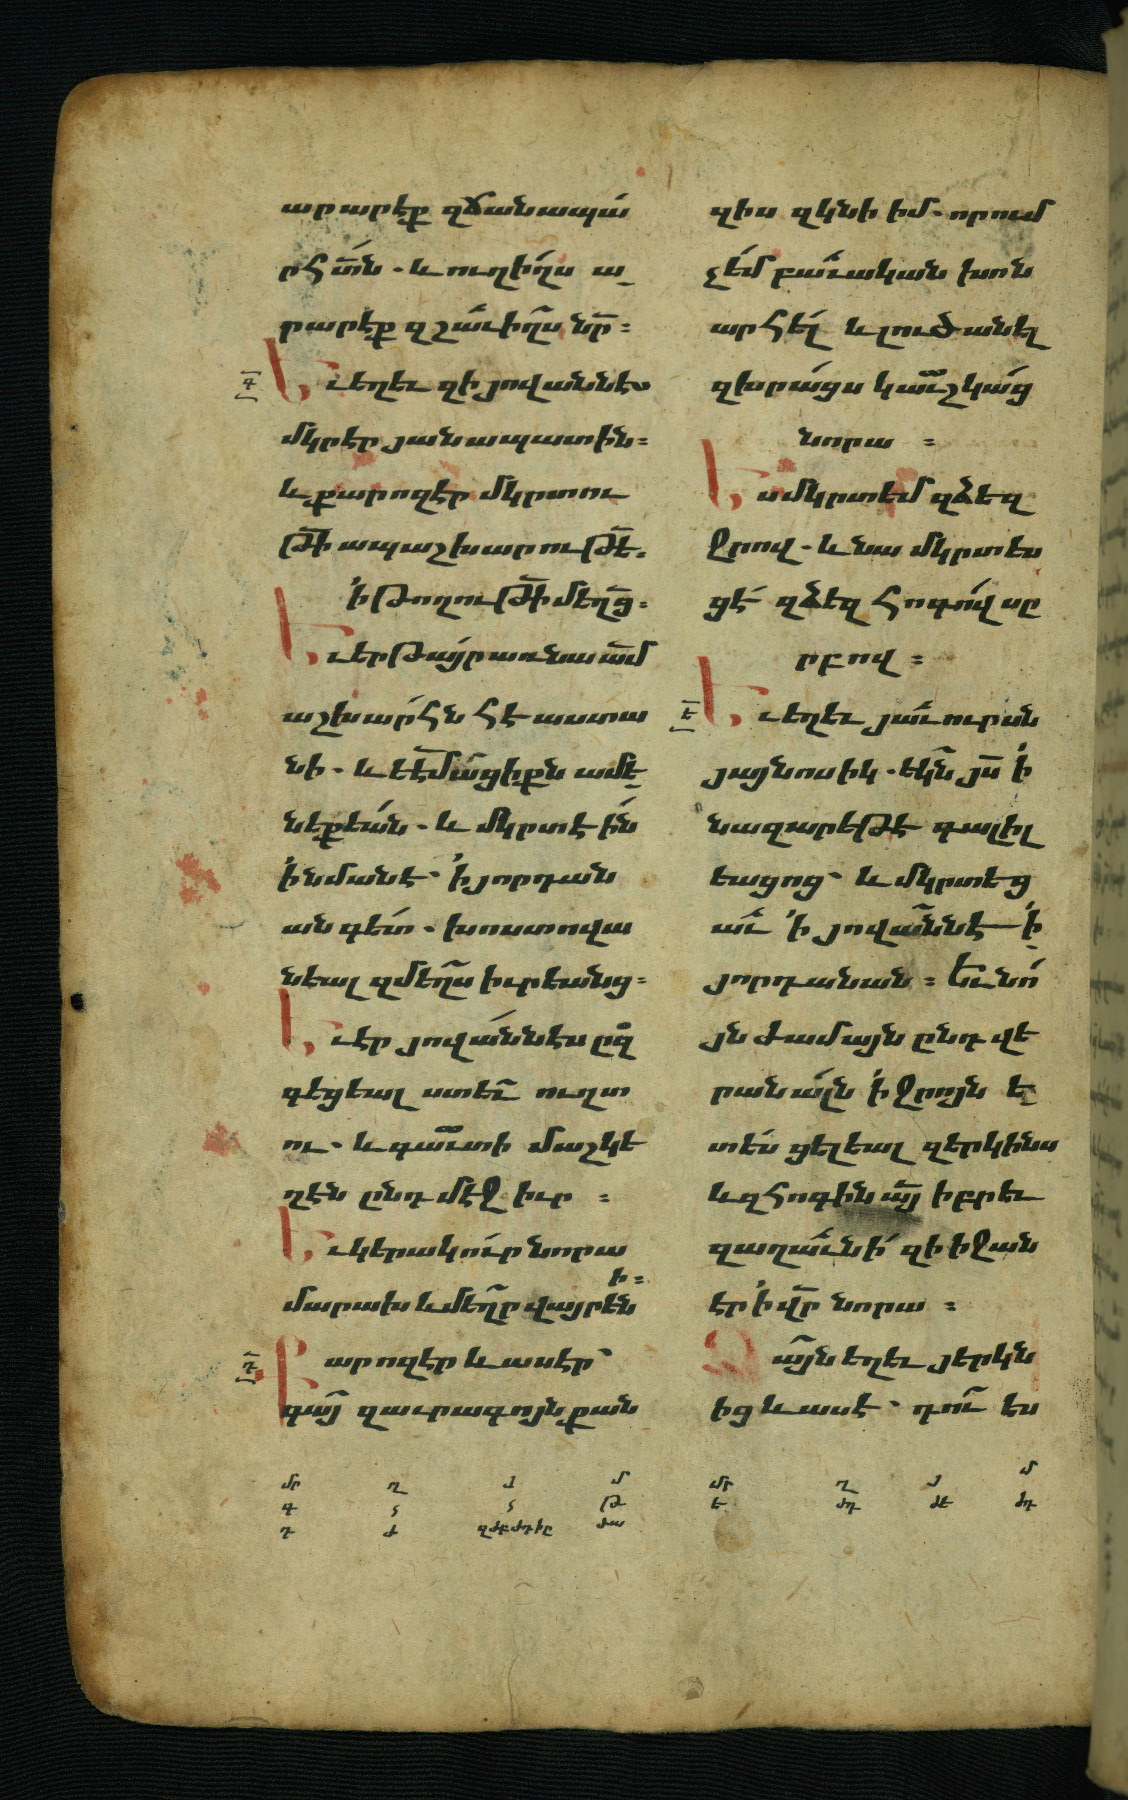 արարէք զճանապա
րհ տն . և ուղիղս ա
րարէք զշաւիղս նր :
գ
Եւ եղեւ զի յովաննէս
մկրէր յանապատին :
և քարոզէր մկրտու
թի ապաշխարութե .
ի թողութի մեղց :
Եւ երթայր առ նա ամ
աշխարհն հէաստա
նի . և եէմացիքն ամե
նեքեան . և մկրտէին
ի նմանէ ՝ ի յորդան
ան գետ . խոստովա
նեալ զմեղս իւրեանց :
Եւ էր յովաննէս ըզ
գեցեալ ստեւ ուղտ
ու . և գաւտի մաշկե
ղէն ընդ մէջ իւր :
Եւ կերակուր նորա
ի :
մարախ և մեղր վայրեն
դ
Քարոզէր և ասէր ՝
գայ զաւրագոյն քան
զիս զկնի իմ . որում
չեմ բաւական խոն
արհել և լուծանել
զխրացս կաւշկաց
նորա :
Ես մկրտեմ զձեզ
ջրով . և նա մկրտես
ցէ զձեզ հոգով սը
րբով :
ե
Եւ եղեւ յաւուրսն
յայնոսիկ . եկն յս ի
նազարեթէ գալիլ
եացոց ՝ և մկրտեց
աւ ի յովաննէ ի
յորդանան : Եւ նո
յն ժամայն ընդ վե
րանալն ի ջրոյն ե
տես ցելեալ զերկինս
և զհոգին այ իբրեւ
զաղաւնի զի իջան
էր ի վր նորա :
Ձայն եղեւ յերկն
ից և ասէ ՝ դու ես
մր ղ յ մ
մր ղ յ մ
ե ժդ ժե ժդ